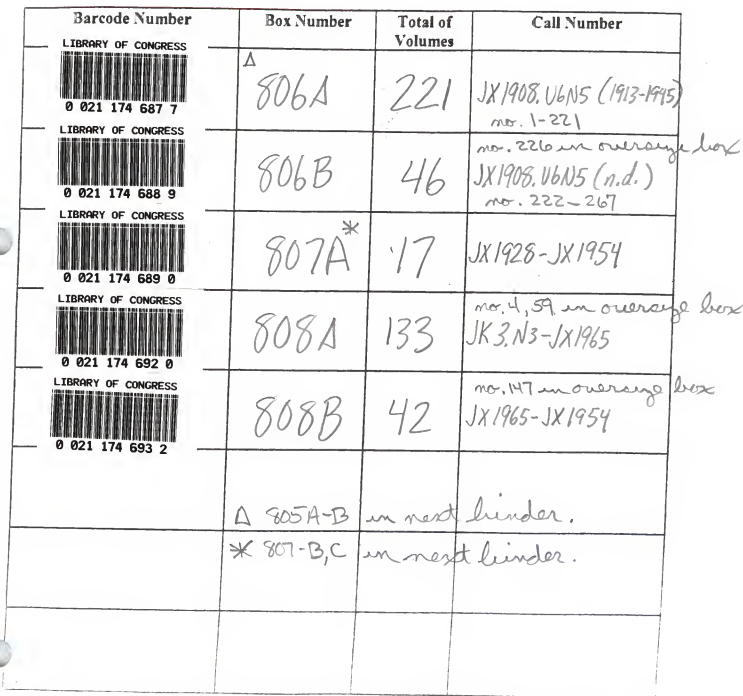 Barcode Number Box Number Total of Volumes Call Number
LIBRARY OF CONGRESS
0 021 174 687 7
Δ
806A 221 JX1908.U6N5 (1913-1945)
no. 1-221
LIBRARY OF CONGRESS
0 021 174 688 9
806B 46
no. 226 in oversize box
JX1908.U6N5 (n.d.)
no. 222-267
LIBRARY OF CONGRESS
0 021 174 689 0
807A* 17 JX1928-JX1954
LIBRARY OF CONGRESS
0 021 174 692 0
808A 133
no. 4, 59 in oversize box
JK3.N3-JX1965
LIBRARY OF CONGRESS
0 021 174 693 2
808B 42
no. 147 in oversize box
JX1965-JX1954
Δ 805A-B in next binder.
* 807-B,C in next binder.